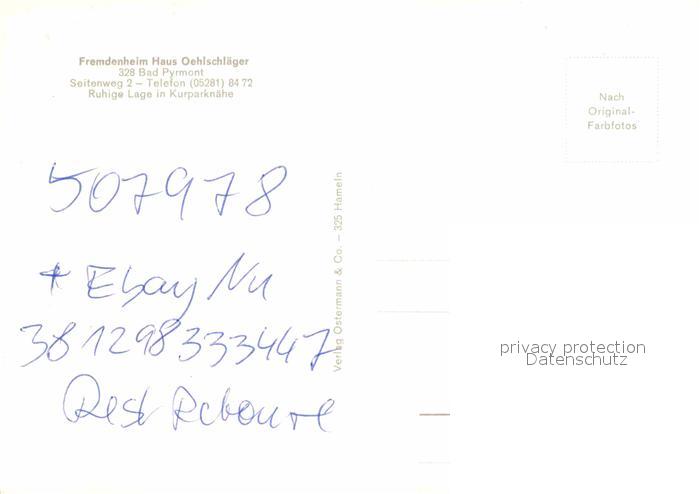 Fremdenheim Haus Oehlschläger
328 Bad Pyrmont
Seitenweg 2 – Telefon (05281) 84 72
Ruhige Lage in Kurparknähe
Nach
Original-
Farbfotos
507978
Verlag Ostermann & Co. – 325 Hameln
+ Ebay Nu
381298333447
Rest
privacy protection
Datenschutz